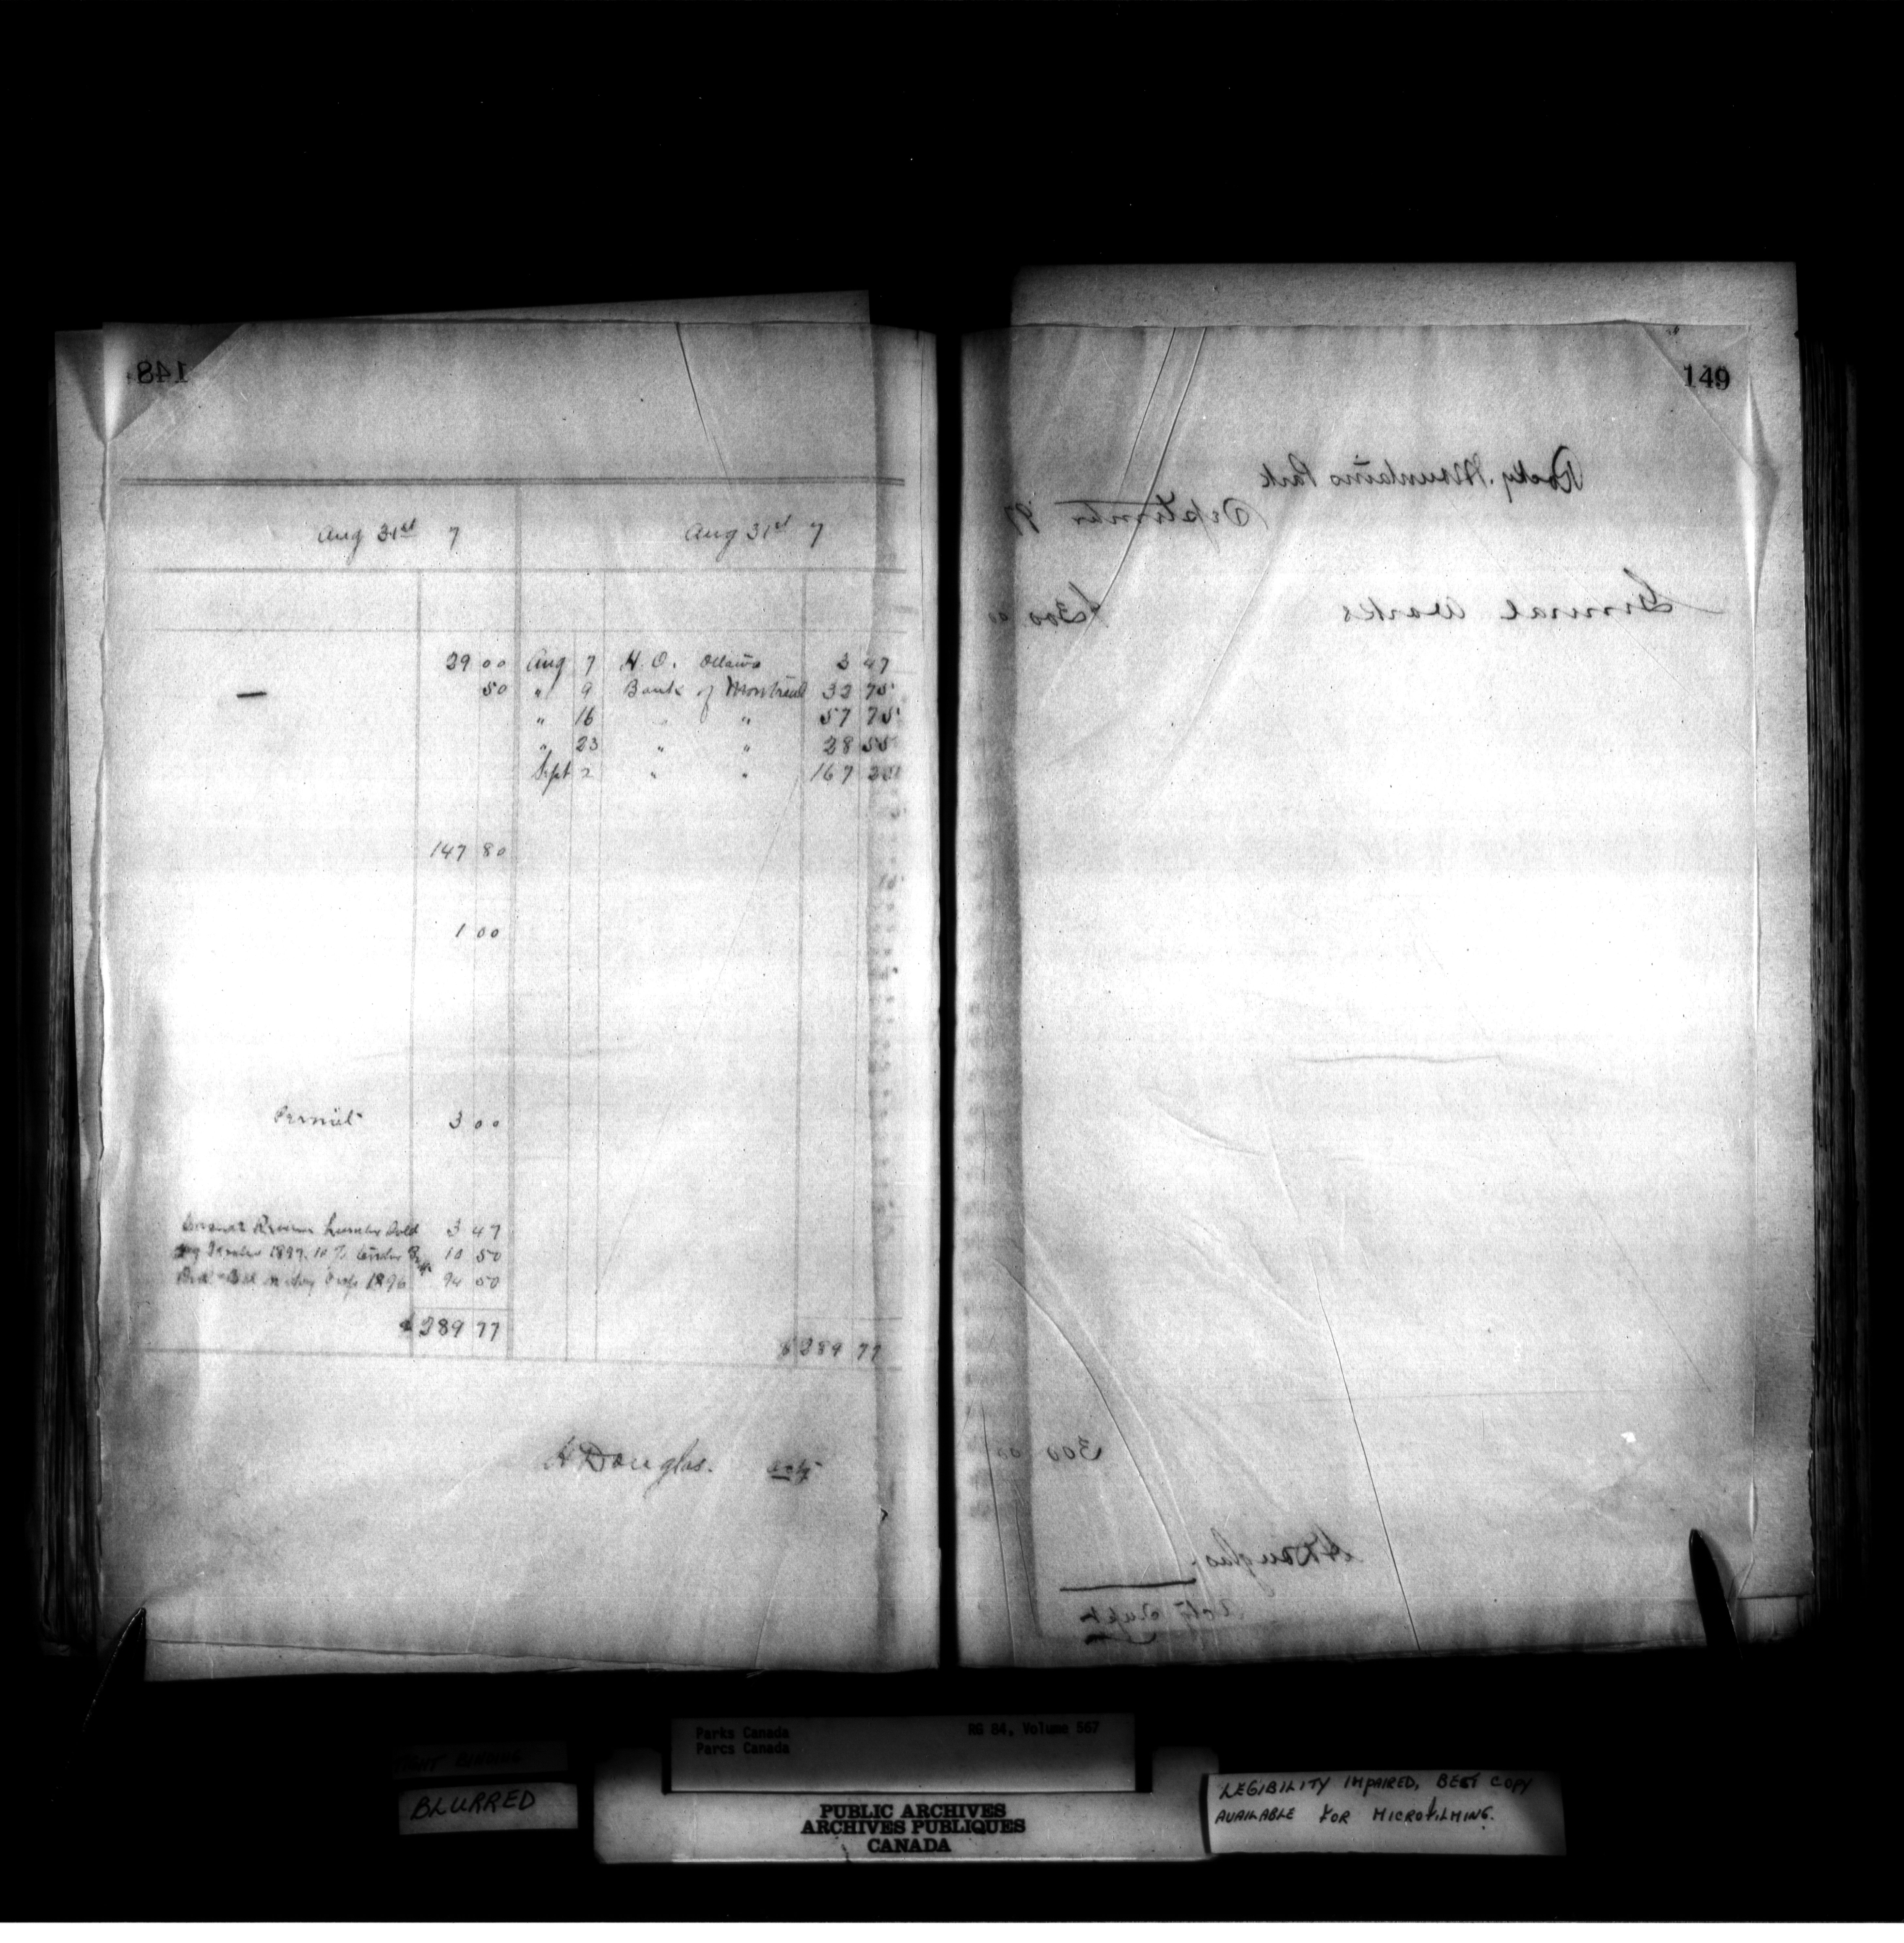 148
Aug 31st 7 Aug 31st 7
29 00 Aug 7 H. O. Ottawa 3 47
50 " 9 Bank of Montreal 32 75
" 16 " " 57 75
" 23 " " 28 55
Sept 2 " " 167 25
147 80
1 00
Permit 3 00
Revenue Lumber Sold 3 47
1897. 10 % 10 50
1896 94 50
$ 289 77
$ 289 77
H Douglas. actg
149
Rocky Mountains Park
September 97
General Works $300 00
300 00
H Douglas.
Actg Supt
Parks Canada RG 84, Volume 567
Parcs Canada
TIGHT BINDING
BLURRED
PUBLIC ARCHIVES
ARCHIVES PUBLIQUES
CANADA
LEGIBILITY IMPAIRED, BEST COPY
AVAILABLE FOR MICROFILMING.